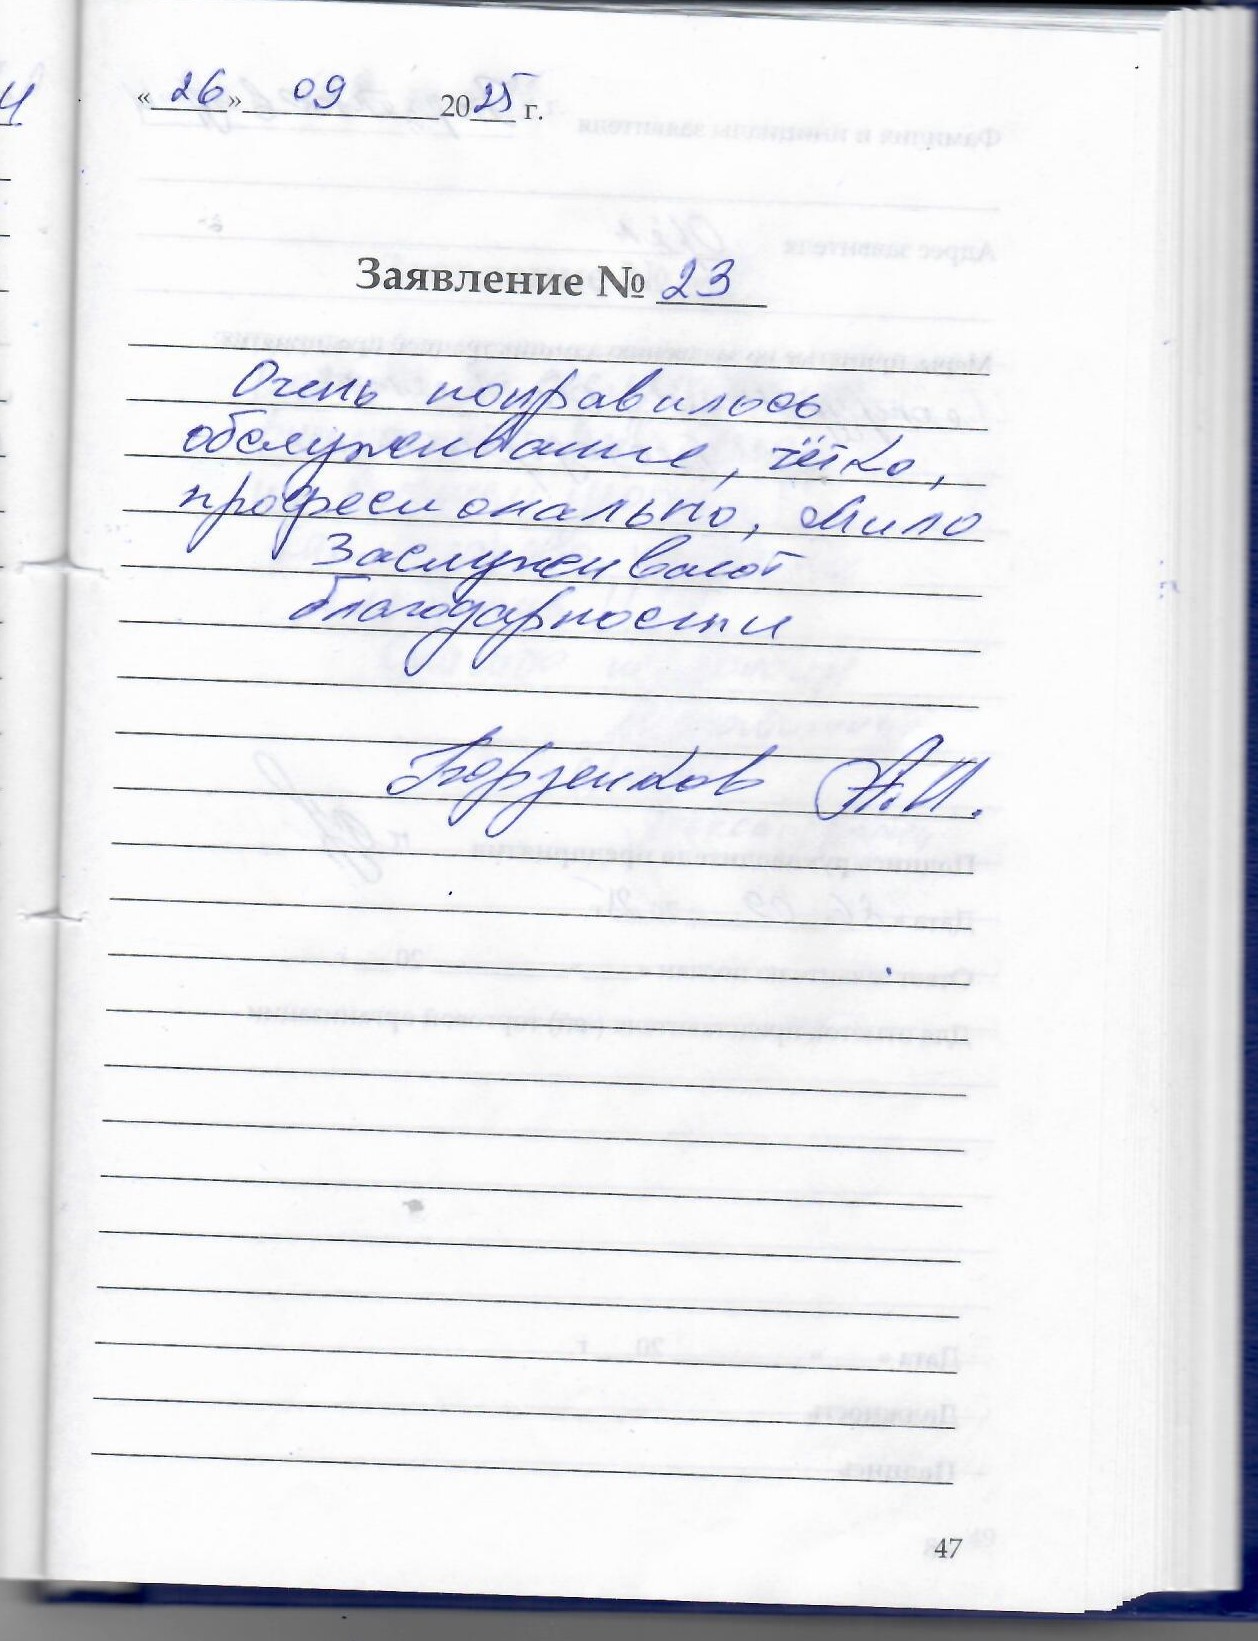 « 26 » 09 2025 г.
Заявление № 23
Очень понравилось
обслуживание, чётко,
професионально, мило
Заслуживают
благодарности
Борзенков А.И.
47